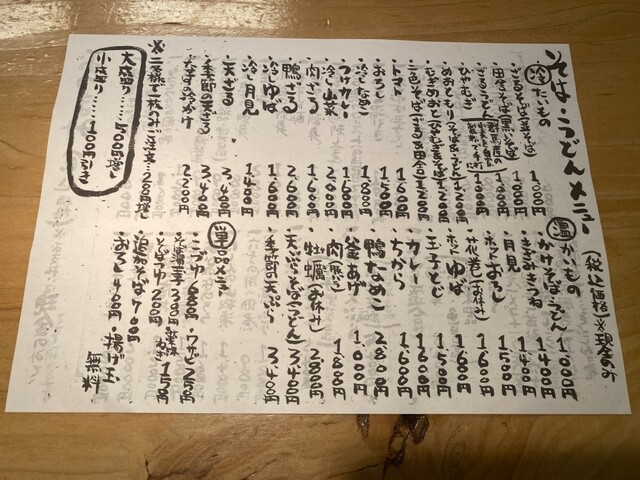 そば・うどんメニュー
(税込価格)※現金のみ
冷たいもの
・ざるそば(並そば) 1,000円
・田舎そば(黒いそば) 1,000円
・ざるうどん 1,000円
・ひやむぎ 1,000円
・めおともり(そば&うどん) 1,200円
・むぎめおと
・二色そば(ざる&田舎)
・トマト 1,600円
・おろし 1,500円
・冷しなめこ 1,800円
・つけカレー 1,600円
・冷し山菜 2,000円
・肉ざる 1,600円
・鴨ざる 2,600円
・冷しゆば 1,600円
・冷し月見 1,400円
・天ざる 3,400円
・季節の天ざる 3,400円
・なすのぶっかけ 2,200円
※二名様で一枚のみご注文…200円増し
大盛り……500円増し
小盛り……100円引き
温かいもの
・かけそば・うどん 1,000円
・きざみきつね 1,400円
・月見 1,400円
・ホットおろし 1,500円
・花巻(お休み) 1,600円
・ホットゆば 1,600円
・玉子とじ 1,500円
・カレー 1,600円
・ちから 1,600円
・鴨なんこ 2,800円
・釜あげ 1,000円
・肉(熊) 1,800円
・牡蠣(お休み) 2,800円
・天ぷらそば(うどん) 3,400円
・季節の天ぷら 3,400円
単品メニュー
・こづゆ 680円 ・ワサビ 250円
・そばつゆ 200円
・追加そば 700円
・おろし 400円 ・揚げ玉 無料